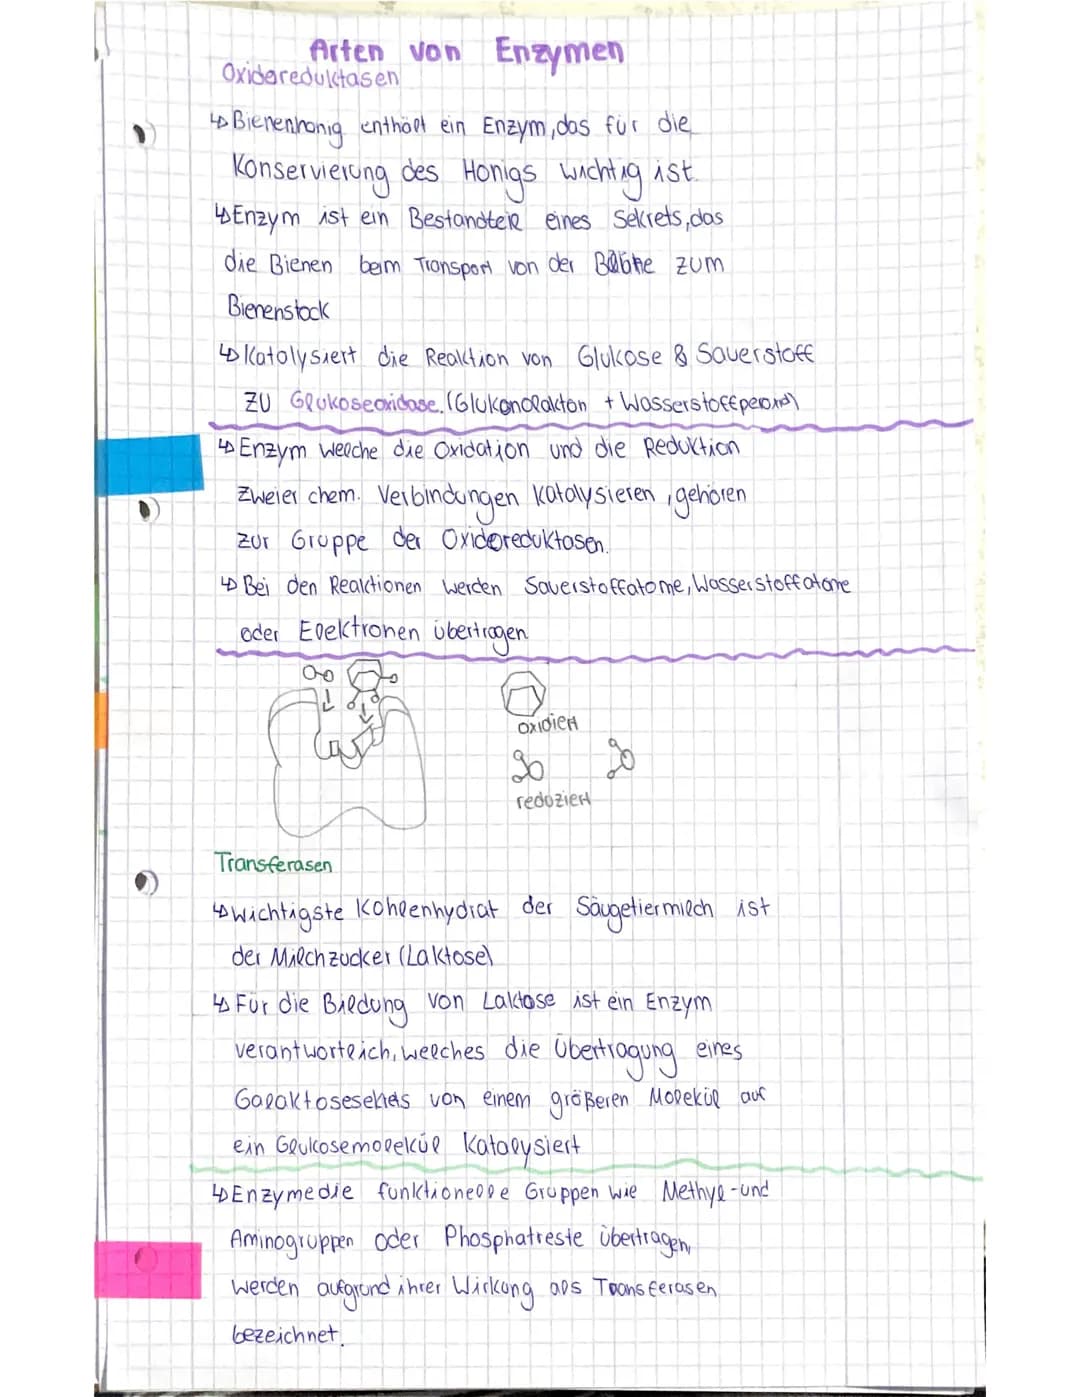 Arten von Enzymen
Oxidoreduktasen
↳ Bienenhonig enthält ein Enzym, das für die
Konservierung des Honigs wichtig ist.
↳ Enzym ist ein Bestandteil eines Sekrets, das
die Bienen beim Transport von der Blüte zum
Bienenstock
↳ Katalysiert die Reaktion von Glukose & Sauerstoff
zu Glukoseoxidase. (Glukonolakton + Wasserstoffperoxid)
↳ Enzym welche die Oxidation und die Reduktion
zweier chem. Verbindungen katalysieren, gehören
zur Gruppe der Oxidoreduktasen.
↳ Bei den Reaktionen werden Sauerstoffatome, Wasserstoffatome
oder Elektronen übertragen
oxidiert
reduziert
Transferasen
↳ wichtigste Kohlenhydrat der Säugetiermilch ist
der Milchzucker (Laktose)
↳ Für die Bildung von Laktose ist ein Enzym
verantwortlich, welches die Übertragung eines
von einem größeren Molekül auf
ein Glukosemolekül katalysiert
↳ Enzyme die funktionelle Gruppen wie Methyl- und
Aminogruppen oder Phosphatreste übertragen,
werden aufgrund ihrer Wirkung als Transferasen
bezeichnet.